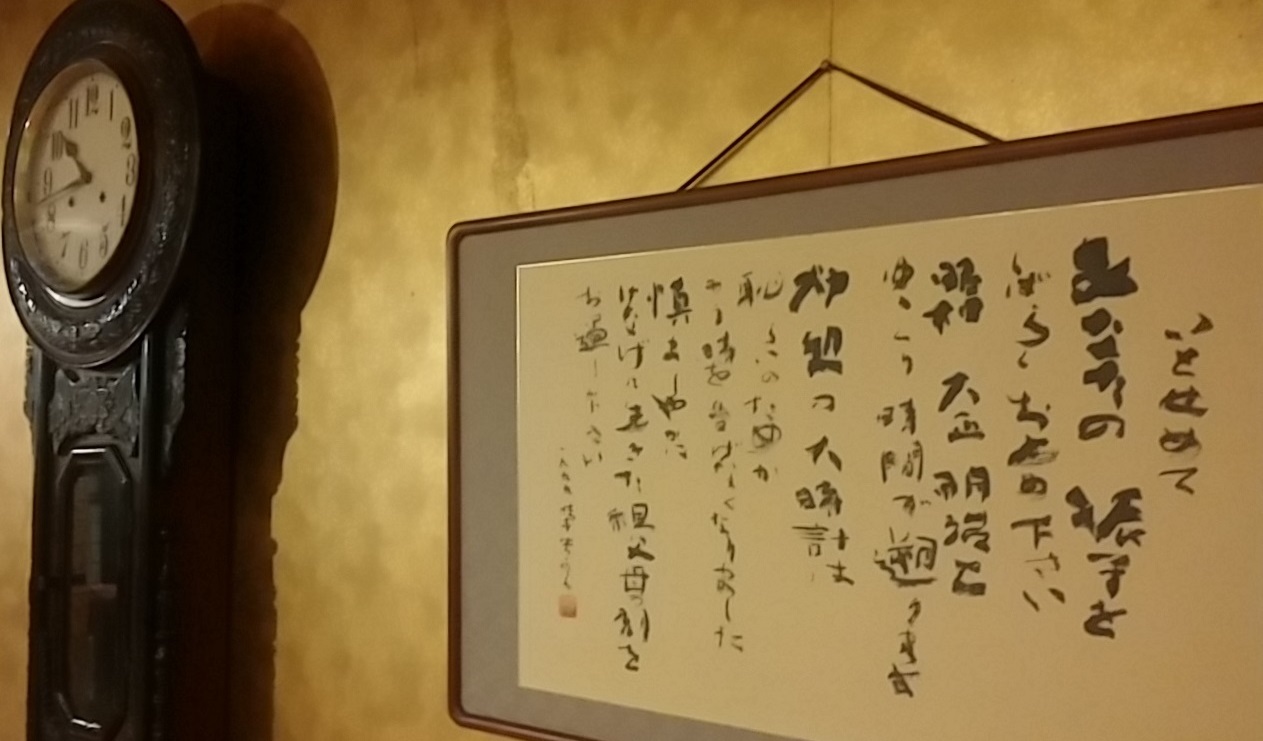 いとせめて
あなたの 振子を
しばらくお 下さい
昭和 大正 明治と
ゆっくり 時間が 遡ります
此処の大時計は
恥らいのためか
もう時を告げなくなりました
慎ましやかに
けなげに生きた祖父母の刻を
お過し下さい
一九九九
12
1
2
3
4
5
6
7
8
9
10
11